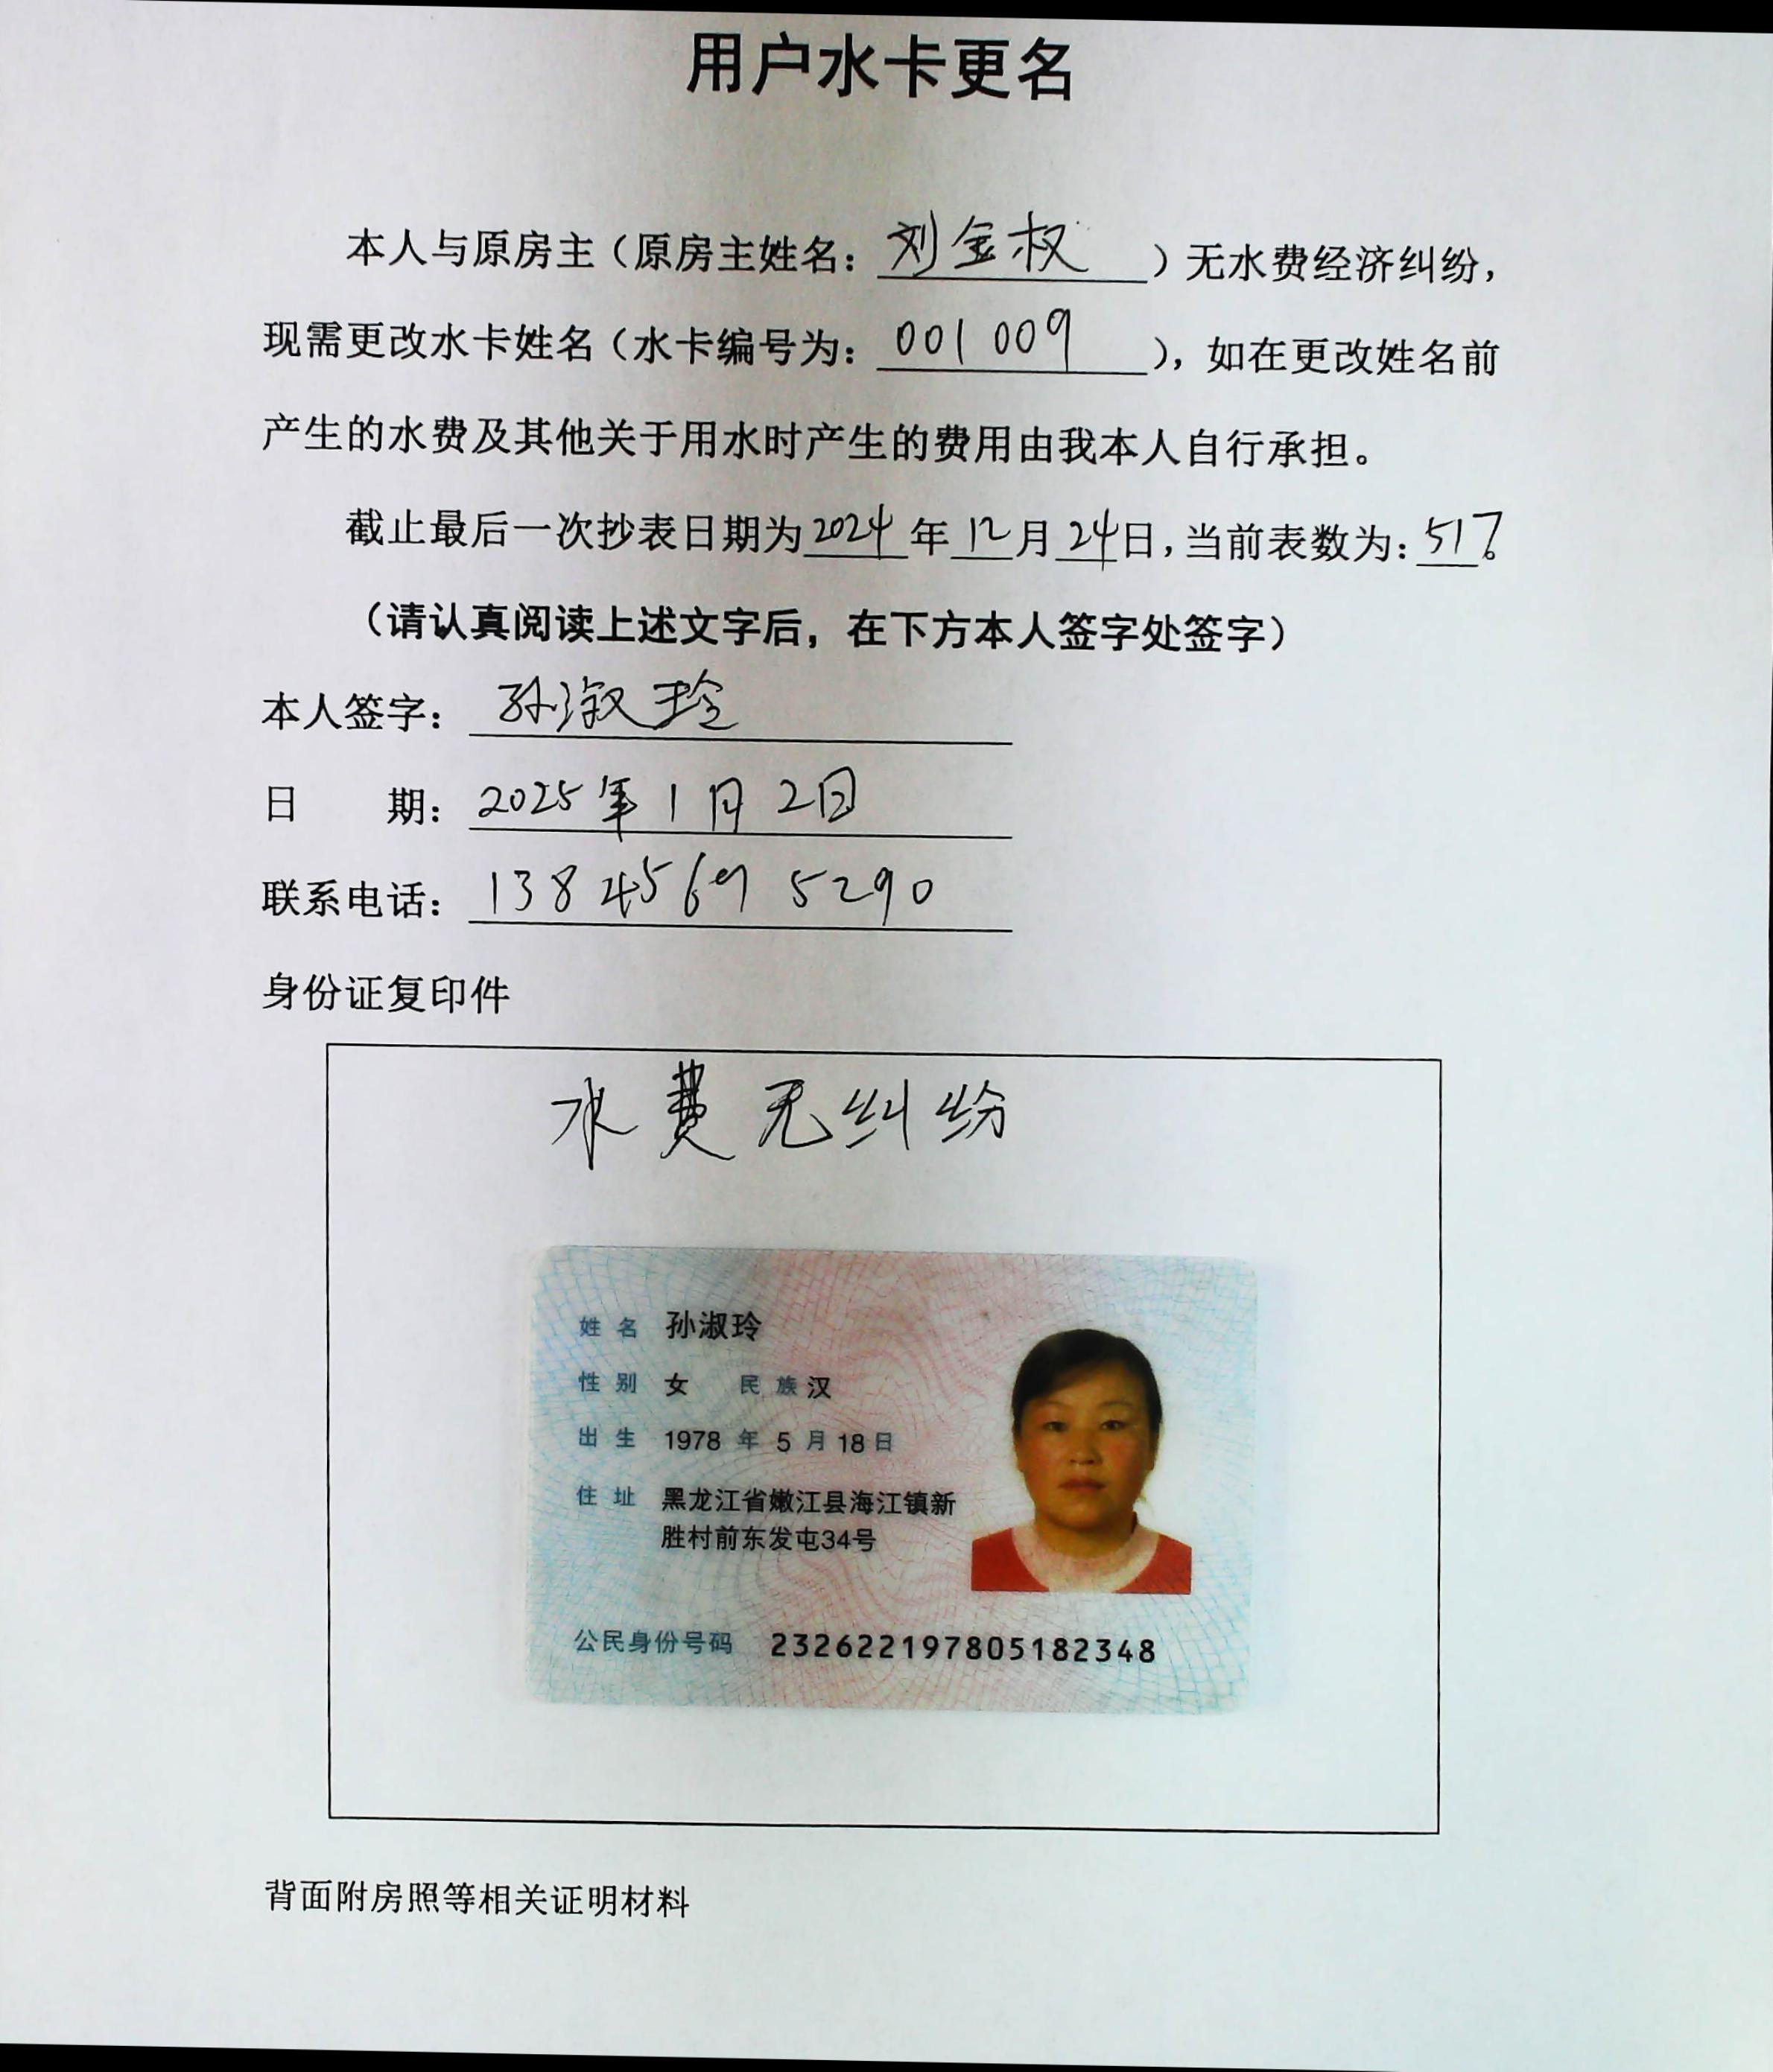 用户水卡更名
本人与原房主（原房主姓名：刘金权）无水费经济纠纷，
现需更改水卡姓名（水卡编号为：001009），如在更改姓名前
产生的水费及其他关于用水时产生的费用由我本人自行承担。
截止最后一次抄表日期为2024年12月24日，当前表数为：517。
（请认真阅读上述文字后，在下方本人签字处签字）
本人签字：孙淑玲
日 期：2025年1月2日
联系电话：13845695290
身份证复印件
水费无纠纷
姓名 孙淑玲
性别 女 民族 汉
出生 1978年5月18日
住址 黑龙江省嫩江县海江镇新
胜村前东发屯34号
公民身份号码 232622197805182348
背面附房照等相关证明材料